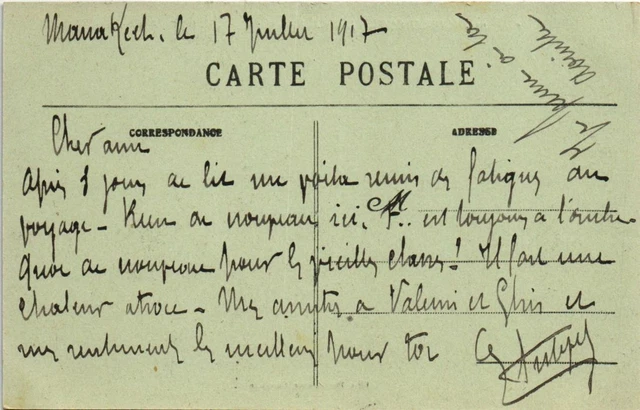 Marrakech. le 17 Juillet 1917
CARTE POSTALE
CORRESPONDANCE
ADRESSE
Cher ami
Après 8 jours de lit me voilà remis des fatigues du
voyage - Rien de nouveau ici. M. F.. est toujours à
Quoi de nouveau pour les vieilles classes! Il fait une
chaleur atroce - Mes amitiés à et et
mes sentiments les meilleurs pour toi